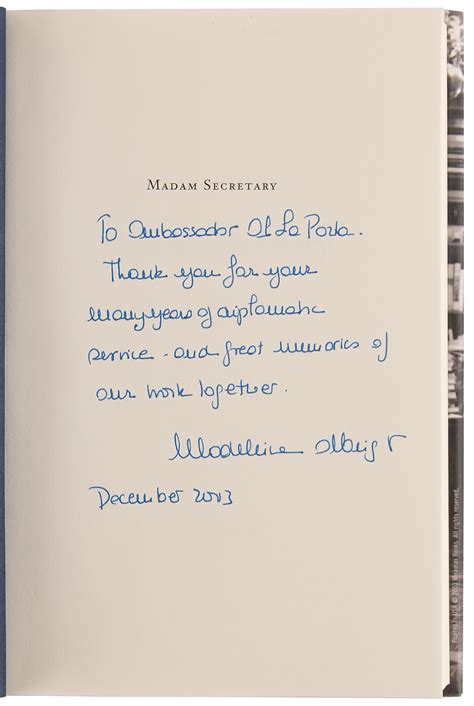 MADAM SECRETARY
To Ambassador Al La Porta.
Thank you for your
many years of diplomatic
service - and great memories of
our work together.
Madeleine Albright
December 2003
© 2003 Miramax Books. All rights reserved.